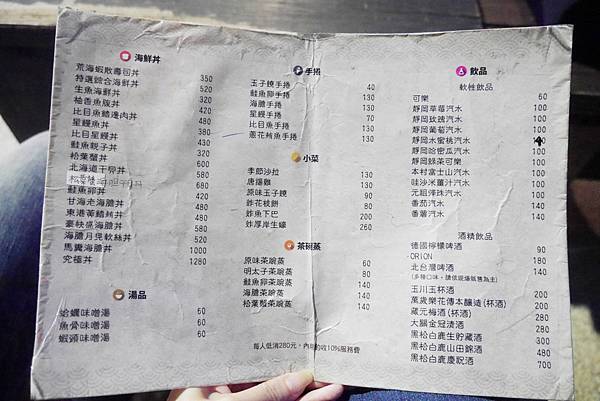 海鮮丼
荒海蝦散壽司丼 350
特選綜合海鮮丼 520
生魚海鮮丼 320
柚香魚腹丼 420
比目魚鰭邊肉丼 440
星鰻魚丼 430
比目星鰻丼 320
鮭魚親子丼 600
松葉蟹丼 580
北海道干貝丼 680
鮭魚卵丼
甘海老海膽丼
東港黃鰭鮪丼
豪快盛海膽丼
海膽月見軟絲丼 520
馬糞海膽丼 1000
究極丼 1280
湯品
蛤蠣味噌湯 60
魚骨味噌湯 60
蝦頭味噌湯 60
手捲
玉子燒手捲 40
鮭魚卵手捲 130
海膽手捲 130
星鰻手捲 130
比目魚手捲 130
蔥花鮪魚手捲 130
小菜
季節沙拉 130
唐揚雞 130
原味玉子燒 90
炸花枝餅 80
炸魚下巴 200
炸厚岸生蠔 260
茶碗蒸
原味茶碗蒸 60
明太子茶碗蒸 80
鮭魚卵茶碗蒸 140
海膽茶碗蒸 140
松葉蟹茶碗蒸 140
每人低消280元，內用酌收10%服務費
飲品
軟性飲品
可樂 60
靜岡草莓汽水 100
靜岡玫瑰汽水 100
靜岡葡萄汽水 100
靜岡水蜜桃汽水
靜岡哈密瓜汽水 100
靜岡綠茶可樂 100
本村富士山汽水 100
哇沙米薑汁汽水 100
元祖彈珠汽水 100
番茄汽水 140
番薯汽水 140
酒精飲品
德國檸檬啤酒 90
ORION 180
北台灣啤酒 140
(多種口味，請依現場販售為主)
玉川玉杯酒 200
萬歲樂花傳本釀造(杯酒) 200
藏元梅酒(杯酒) 200
大關金冠清酒 280
黑松白鹿生貯藏酒 300
黑松白鹿山田錦酒 480
黑松白鹿慶祝酒 700